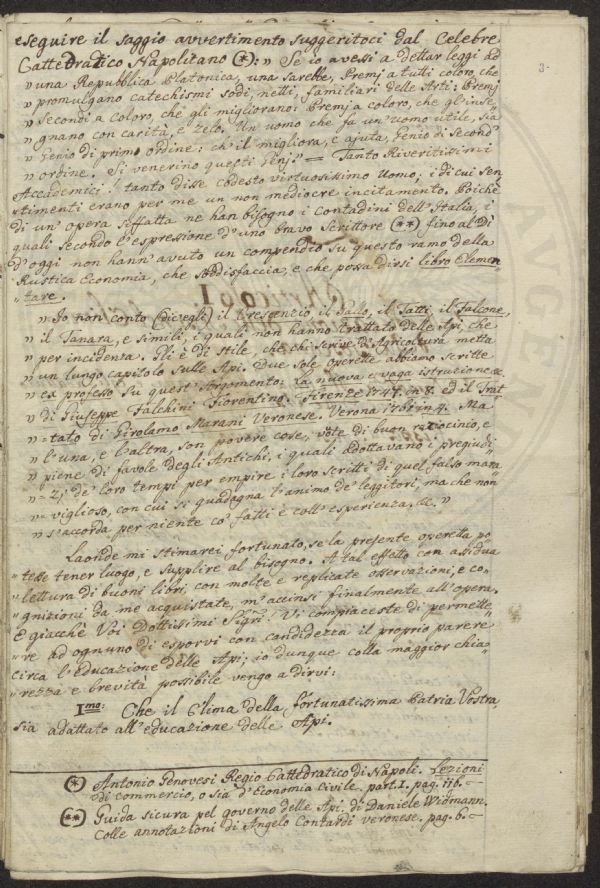 eseguire il saggio avvertimento suggeritoci dal Celebre
3.
Cattedratico Napolitano (*): „ Se io avessi a dettar leggi ad
„ una Repubblica Platonica, una sarebbe, Premj a tutti coloro, che
„ promulgano catechismi sodi, netti, familiari delle Arti: Premj
„ Secondi a coloro, che gli migliorano: Premj a coloro, che gl'inse
„ gnano con carità, e zelo. Un uomo che fa un'uomo utile, sia
„ Genio di primo ordine: ch'il migliora, e ajuta, Genio di Second'
„ ordine. Si venerino questi Genj„ = Tanto Riveritissimi
Accademici! tanto disse codesto virtuosissimo Uomo; i di cui sen
timenti erano per me un non mediocre incitamento. Poichè
di un'opera siffatta ne han bisogno i Contadini dell'Italia, i
quali secondo l'espressione d'uno bravo Scrittore (**) fino al Dì
d'oggi non hann'avuto un compendio su questo ramo della
Rustica Economia, che sodisfaccia, e che possa dirsi libro Elemen-
tare.
„ Io non conto (dic'egli) il Crescenzio, il Gallo, il Tatti, il Falcone,
„ il Tanara, e simili, i quali non hanno trattato delle Api, che
„ per incidenza. Si è di stile, che chi scrive di Agricoltura metta
„ un lungo capitolo sulle Api. Due sole operette abbiamo scritte
„ ex professo su quest'Argomento: La nuova e vaga istruzione
„ di Giuseppe Falchini Fiorentino. Firenze 1747. in 8. ed il Trat-
„ tato di Girolamo Marani Veronese. Verona 1761 in 4. Ma
„ l'una, e l'altra, son povere cose, vòte di buon raziocinio, e
piene di favole degli Antichi, i quali adottavano i pregiudi
„ zj de' loro tempi per empire i loro scritti di quel falso mara
„ viglioso, con cui si guadagna l'animo de' leggitori, ma che non
„ s'accorda per niente co' fatti e coll'esperienza &c. „
Laonde mi stimarei fortunato, se la presente operetta po
tesse tener luogo, e supplire al bisogno. A tal effetto con assidua
lettura di buoni libri, con molte e replicate osservazioni, e co
gnizioni da me acquistate, m'accinsi finalmente all'opera.
E giacchè Voi Dottissimi Sigri! Vi compiaceste di permette
re ad ognuno di esporvi con candidezza il proprio parere
circa l'educazione delle Api; io dunque colla maggior chia
rezza e brevità possibile vengo a dirvi:
Imo: Che il Clima della fortunatissima Patria Vostra
sia adattato all'educazione delle Api.
(*) Antonio Genovesi Regio Cattedratico di Napoli. Lezioni
di Commercio, o sia d'Economia Civile. part. I. pag. 116.
(**) Guida sicura pel governo delle Api, di Daniele Widmann.
Colle annotazioni di Angelo Contardi veronese. pag. 6.